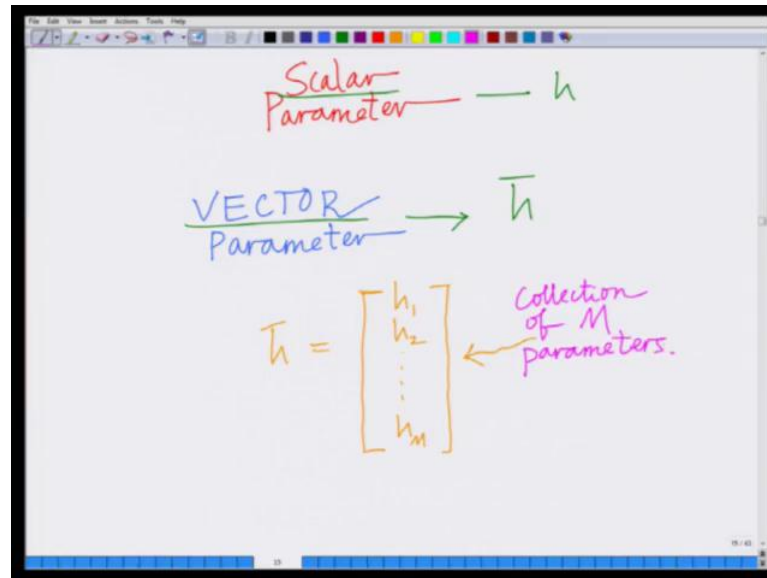 File Edit View Insert Actions Tools Help
Scalar
Parameter — h
VECTOR
Parameter → h̅
h̅ = [h₁
h₂
⋮
h_M]
Collection
of M
parameters.
15